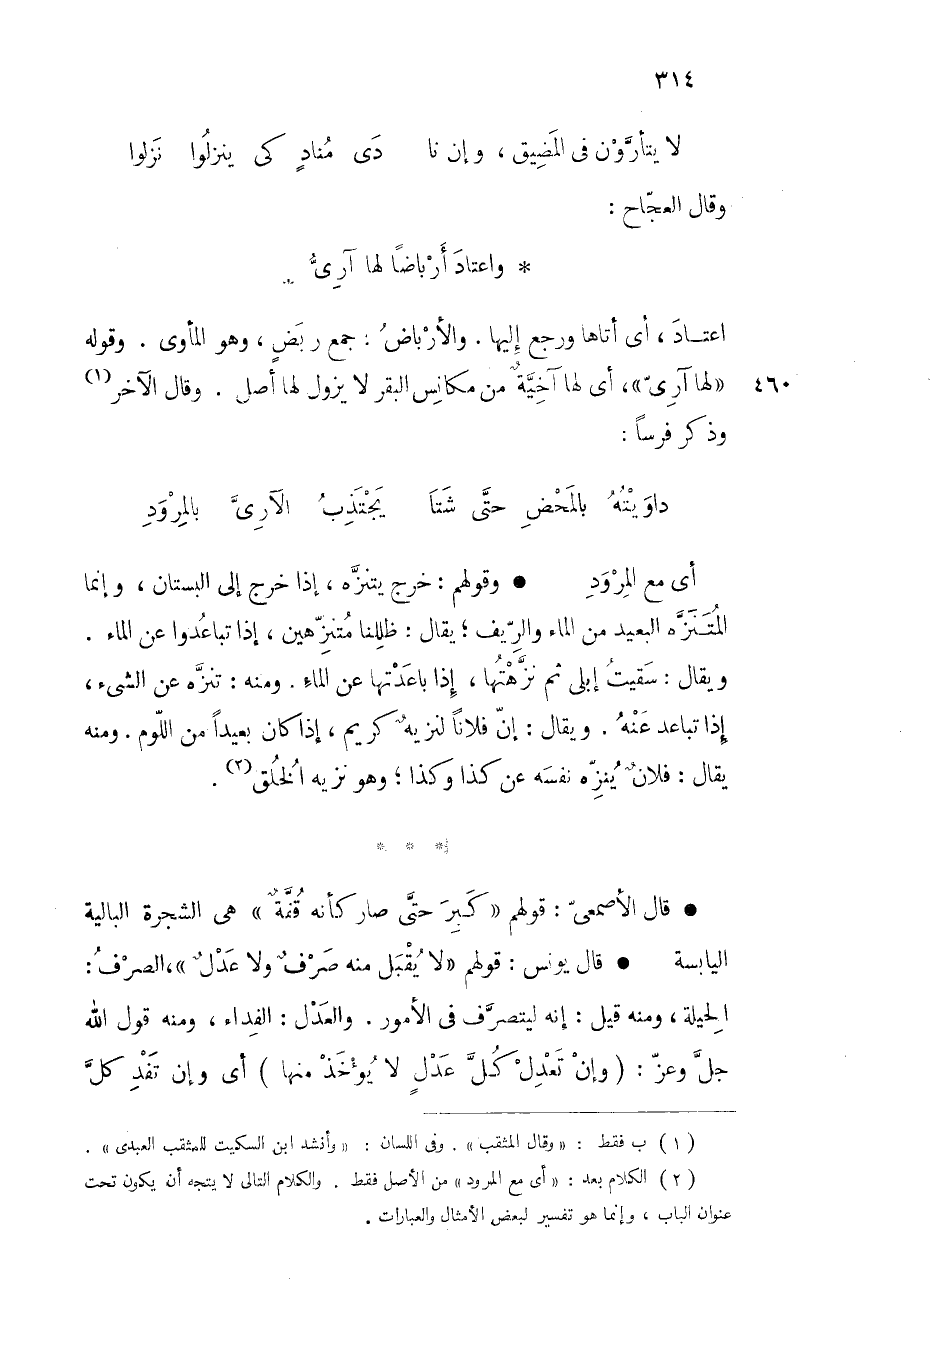 ٣١٤
لا يتأرَّوْن فى المَضِيق ، وإن نا    دَى مُنادٍ كى ينزلُوا نَزلوا
وقال العجّاج :
* واعتادَ أَرْباضًا لها آرِىُّ *
اعتـادَ ، أى أتاها ورجع إليها . والأرْباضُ : جمع ربَضٍ ، وهو المأوى . وقوله
«لها آرِىّ»، أى لها آخِيَّةٌ من مكانِس البقر لا يزول لها أصل . وقال الآخر(١)    ٤٦٠
وذكر فرساً :
داوَيْتُهُ بالمَحْضِ حتَّى شَتَا    يَجْتَذِبُ الآرِىَّ بالمِرْوَدِ
أى مع المِرْوَدِ ● وقولهم : خرج يتنزَّه ، إذا خرج إلى البستان ، وإنما
المُتَنَزَّه البعيد من الماء والرِّيف ؛ يقال : ظلِلنا مُتنزِّهين ، إذا تباعُدوا عن الماء .
ويقال : سَقيتُ إبلى ثم نزَّهْتُها ، إذا باعَدْتها عن الماءِ . ومنه : تنزَّه عن الشىء ،
إذا تباعد عَنْهُ . ويقال : إنّ فلاناً لنزيهٌ كريم ، إذا كان بعيداً من اللّوم . ومنه
يقال : فلانٌ يُنزِّه نفسَه عن كذا وكذا ؛ وهو نزيه الخُلق(٢) .
* * *
● قال الأصمعىّ : قولهم « كَبِرَ حتَّى صار كأنه قُفَّةٌ » هى الشجرة البالية
اليابسة ● قال يونس : قولهم «لا يُقْبَل منه صَرْفٌ ولا عَدْلٌ »، الصرْفُ :
الحِيلة ، ومنه قيل : إنه ليتصرَّف فى الأمور . والعَدْل : الفِداء ، ومنه قول الله
جلَّ وعزّ : ( وإنْ تَعْدِلْ كُلَّ عَدْلٍ لا يُؤخَذْ منها ) أى وإن تَفْدِ كلَّ
( ١ ) ب فقط : « وقال المثقب » . وفى اللسان : « وأنشد ابن السكيت للمثقب العبدى » .
( ٢ ) الكلام بعد : « أى مع المرود » من الأصل فقط . والكلام التالى لا يتجه أن يكون تحت
عنوان الباب ، وإنما هو تفسير لبعض الأمثال والعبارات .